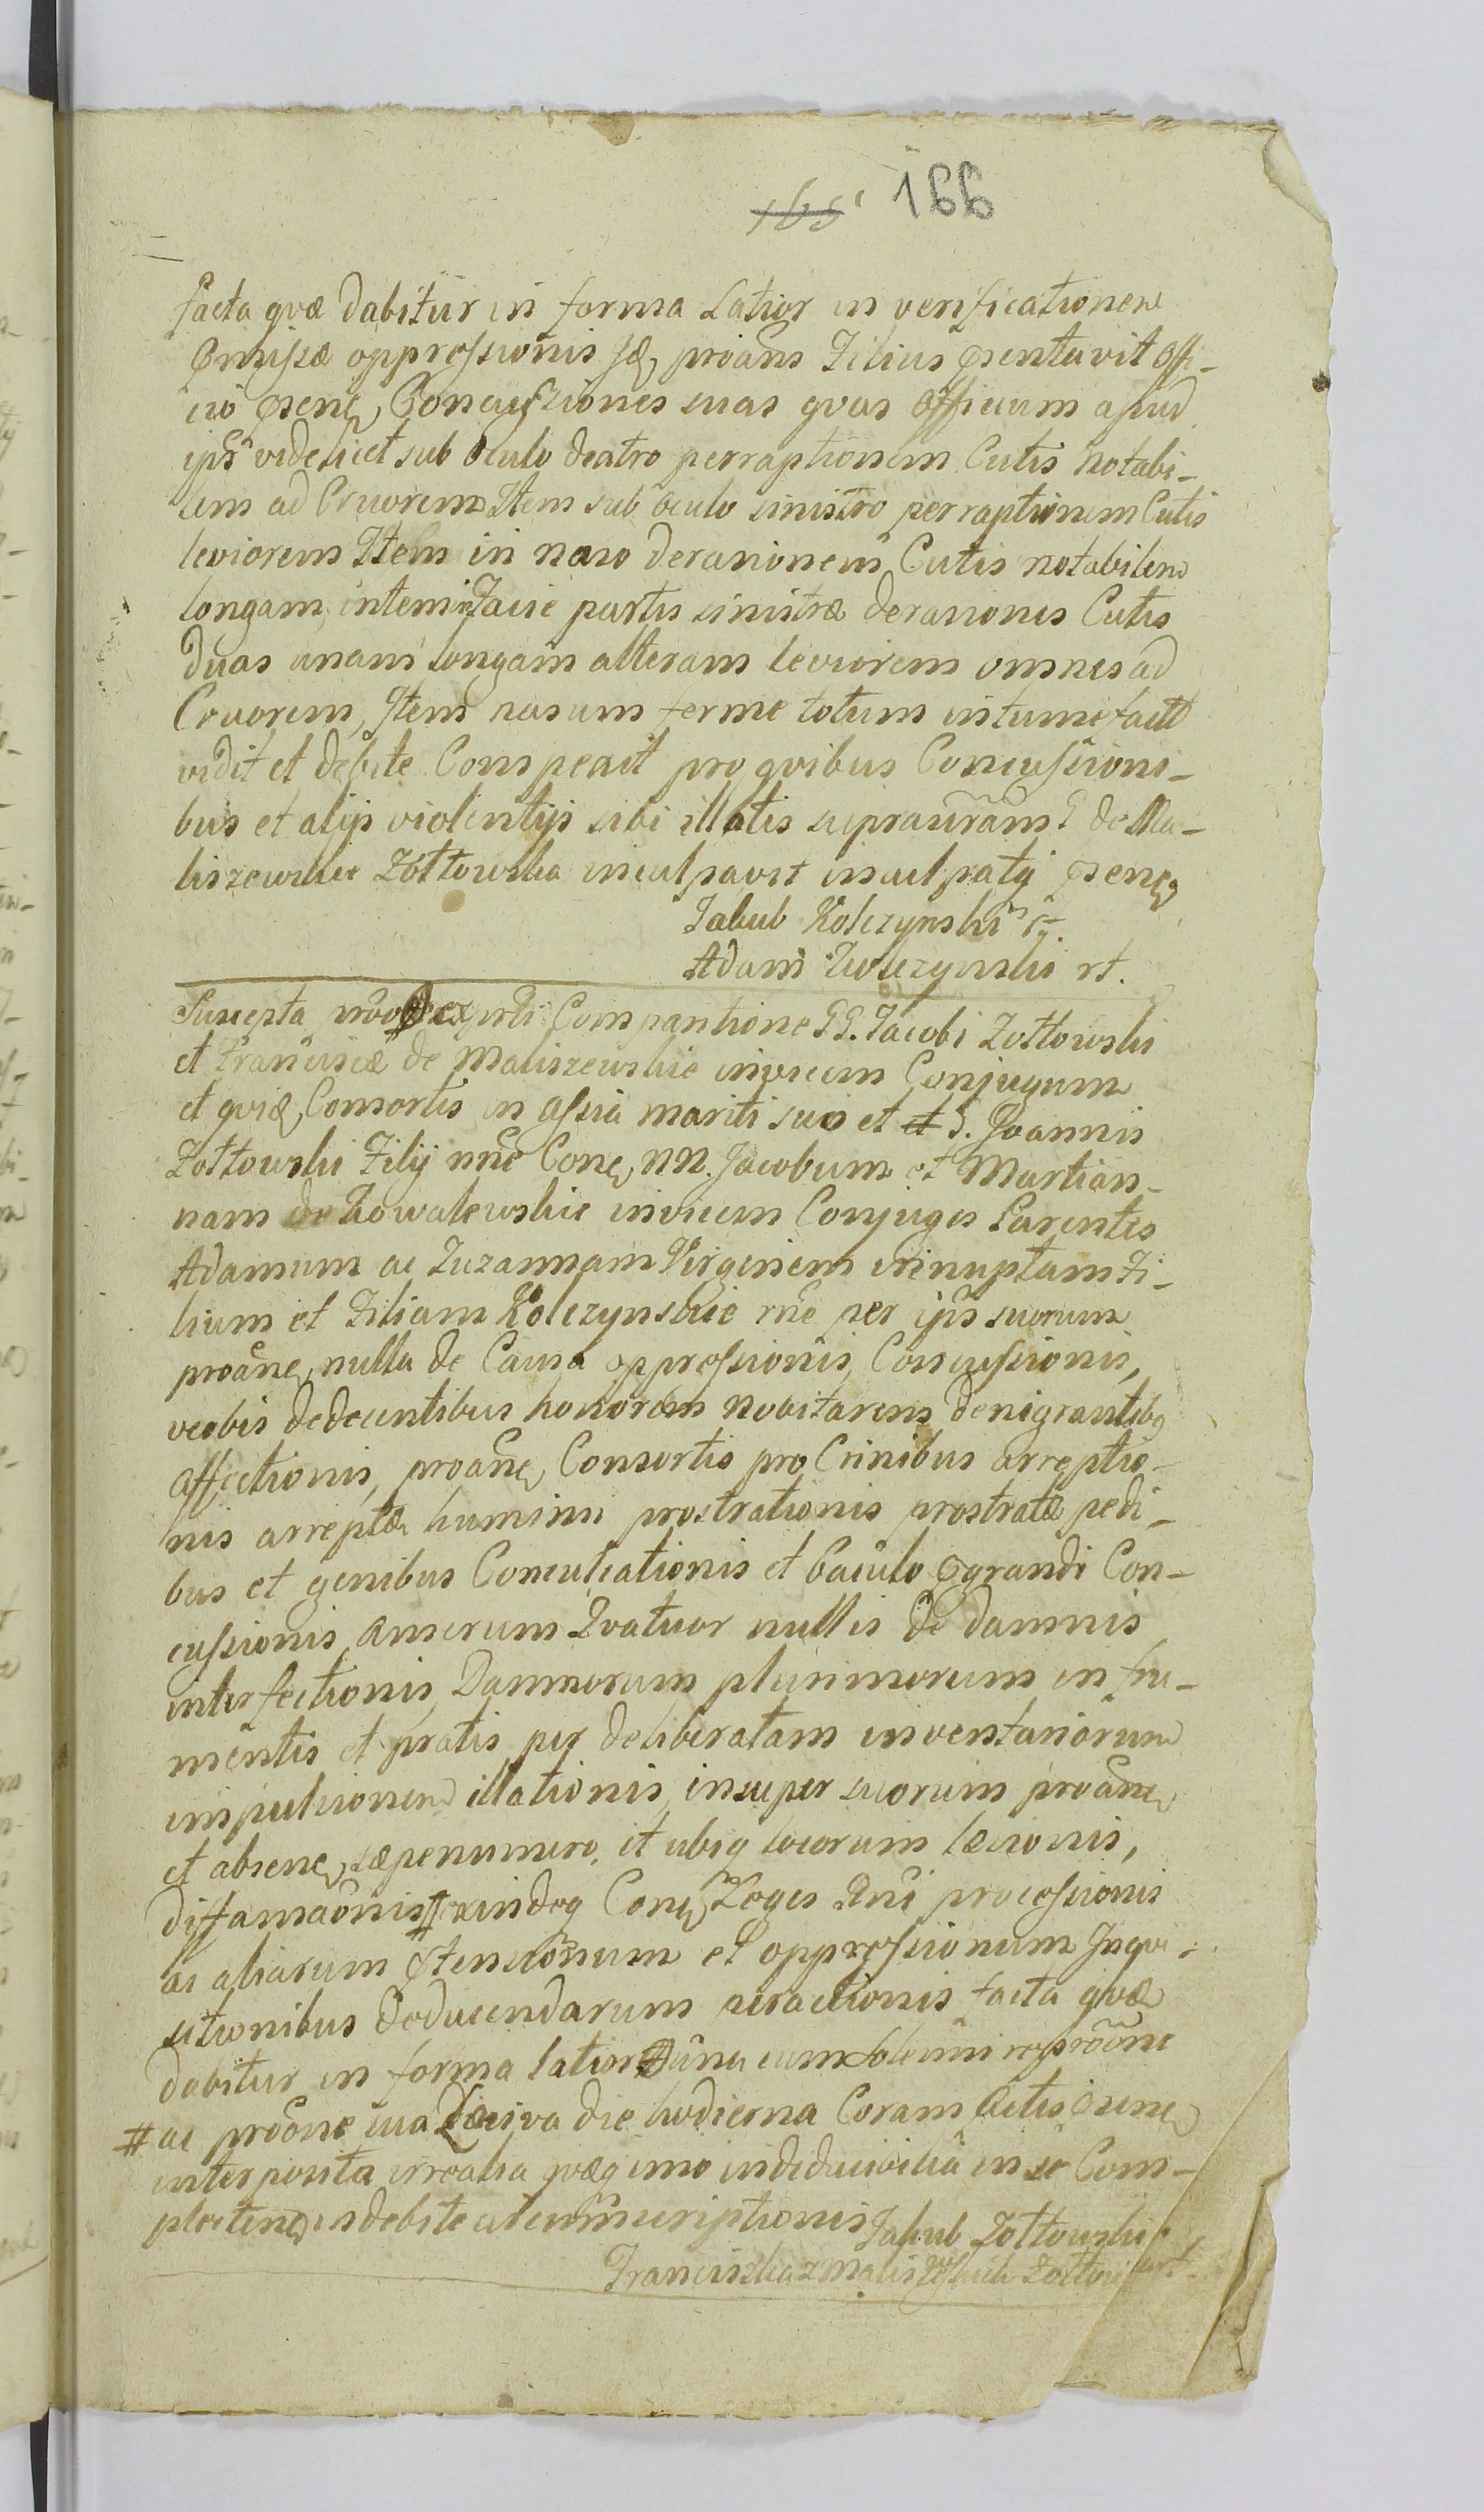 165 166
facta qvæ dabitur in forma Latior in verificationem
præmissæ oppressionis sæ, proans Filius præsentavit Offi-
cio præsenti, Concussiones suas qvas Officium apud
ipm videlicet sub Oculo dextro perraptionem Cutis Notabi-
lem ad Cruorem Item sub oculo sinistro perraptionem Cutis
leviorem Item in naso derasionem Cutis notabilem
longam, intem in Facie partis sinistræ derasiones Cutis
duas unam longam alteram leviorem omnes ad
Cruorem, Item nasum ferme totum intumefact
vidit et debite Conspexit pro qvibus Concussioni-
bus et alijs violentijs sibi illatis de Ma-
liszewskie Zołtowska inculpavit præsenti
Jakub Kolczynski
Adam Kolczynski
Suscepta Comparitione GG. Jacobi Zołtowski
et Franciscæ de Maliszewskie invicem Conjugum
et Consortis in assia mariti sui et et G. Joannis
Zołtowski Filij nne Cone NN. Jacobum et Martian-
nam de Kowalewskie invicem Conjuges Parentes
Adamum ac Zuzannam Virginem innuptam Fi-
lium et Filiam Kolczynskie rne per ips suorum
proane, nulla de Causa oppressionis, Concussionis,
verbis dedecentibus honorem Nobitarem denigrantibq
affectionis, proane, Consortis pro Crinibus arreptio-
nis arreptæ humimi prostrationis prostratæ pedi-
bus et genibus Conculcationis et baculo prægrandi Con-
cussionis Anserum Qvatuor nullis de damnis
interfectionis, Damnorum plurimorum in fru-
mentis et pratis per deliberatam inventariorum
impulsionem illationis, insuper suorum proane
et absene, sæpenumero, et ubiq locorum læsionis,
diffamaonis # Cone Leges Rni processionis
ac aliarum et oppressionum Inqvi-
sitionibus Deducendarum peractionis facta qvæ
dabitur in forma latiori cum Solenni reproone
# ac proone sua Læsiva die hodierna Coram Actis præsene
interposita irrealia qvæq imo indeducibilia in se Com-
plectene, indebite
Jakub Zołtowski
Franciszka z Zołtow